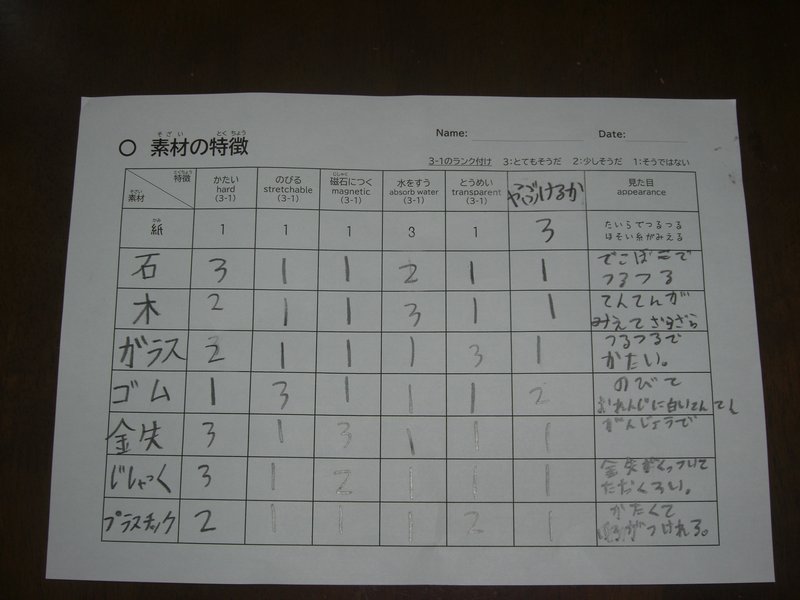 そざい とくちょう
○ 素材の特徴
Name: Date:
3-1のランク付け 3：とてもそうだ 2：少しそうだ 1：そうではない
とくちょう 特徴 そざい 素材 かたい hard (3-1) のびる stretchable (3-1) じしゃく 磁石につく magnetic (3-1) 水をすう absorb water (3-1) とうめい transparent (3-1) 見た目 appearance
かみ 紙 1 1 1 3 1 3 たいらでつるつる
ほそい糸がみえる
石 3 1 1 2 1 1 でこぼこで
つるつる
木 2 1 1 3 1 1 てんてんが
みえてざらざら
ガラス 2 1 1 1 3 1 つるつるで
かたい。
ゴム 1 3 1 1 1 2 のびて
おれんじに白いてんてん
金失 3 1 3 1 1 1 がんじょうで
じしゃっく 3 1 2 1 1 1 金失がくっついて
ただくろい。
プラスチック 2 1 1 1 2 1 かたくて
がつけれる。